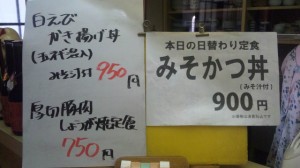 白えび
かき揚げ丼
みそ汁付 950円
厚切豚肉
しょうが焼定食
750円
本日の日替わり定食
みそかつ丼
(みそ汁付)
900円